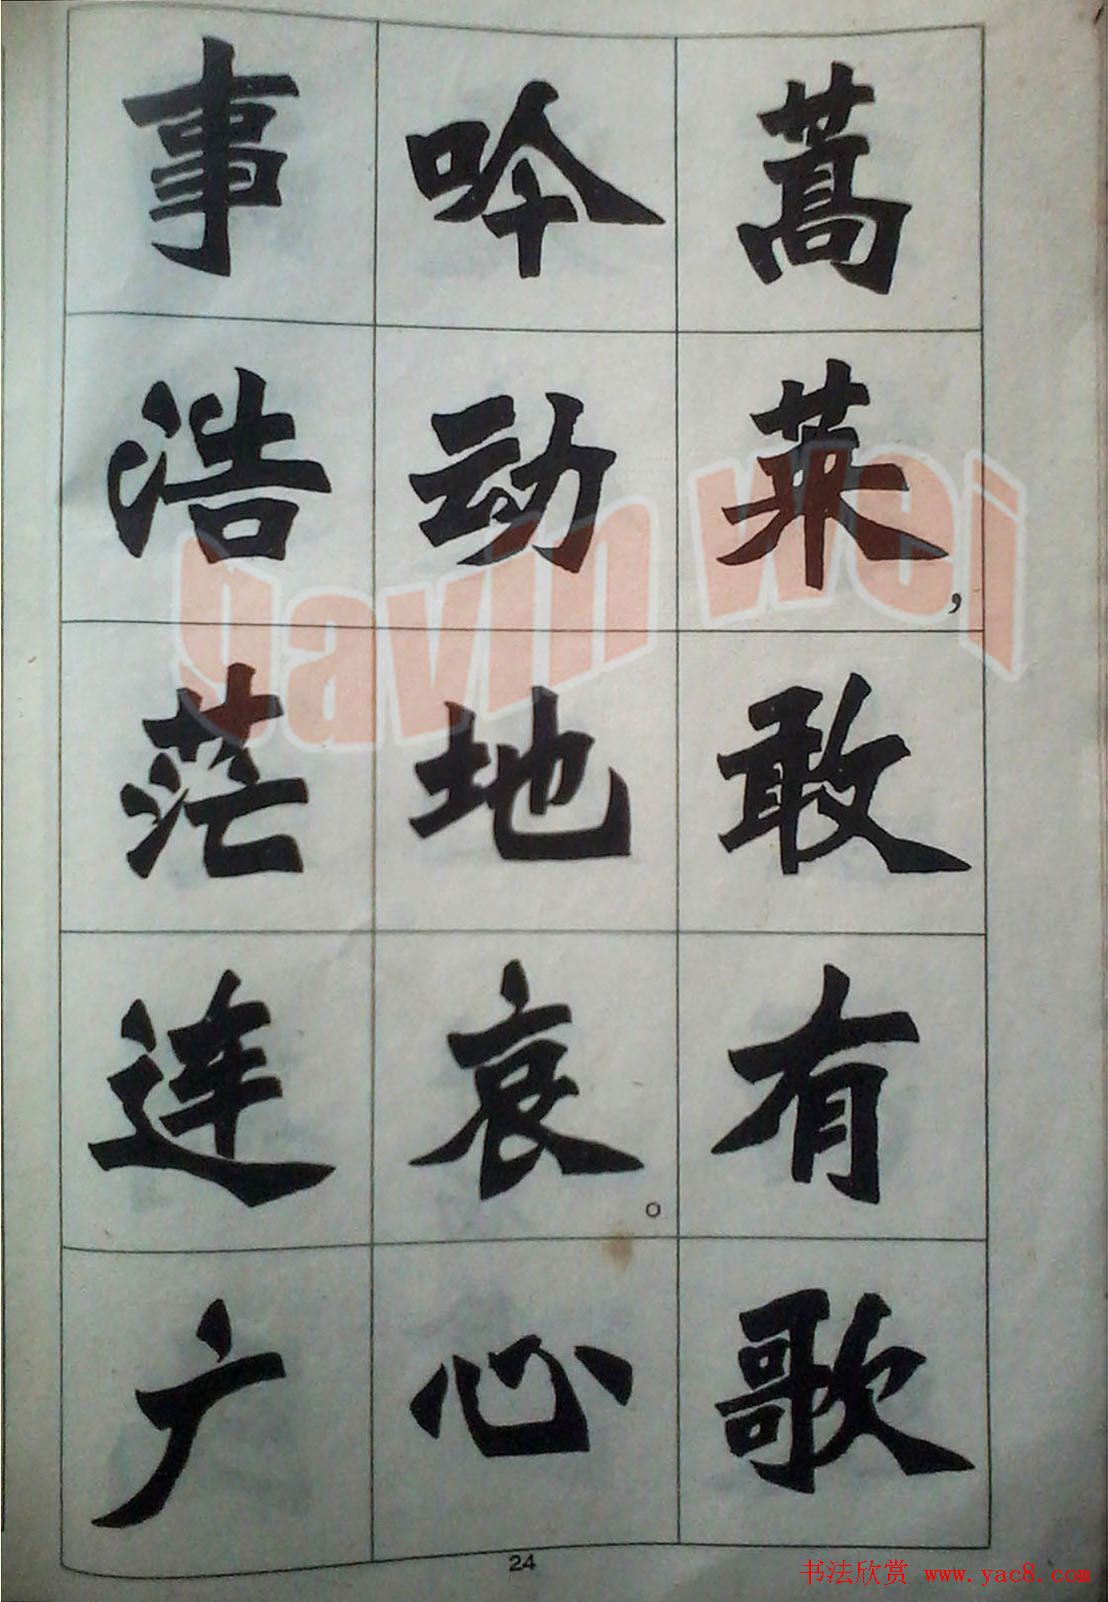 蒿莱,敢有歌
吟动地哀。心
事浩茫连广
24
gavin wei
书法欣赏 www.yac8.com